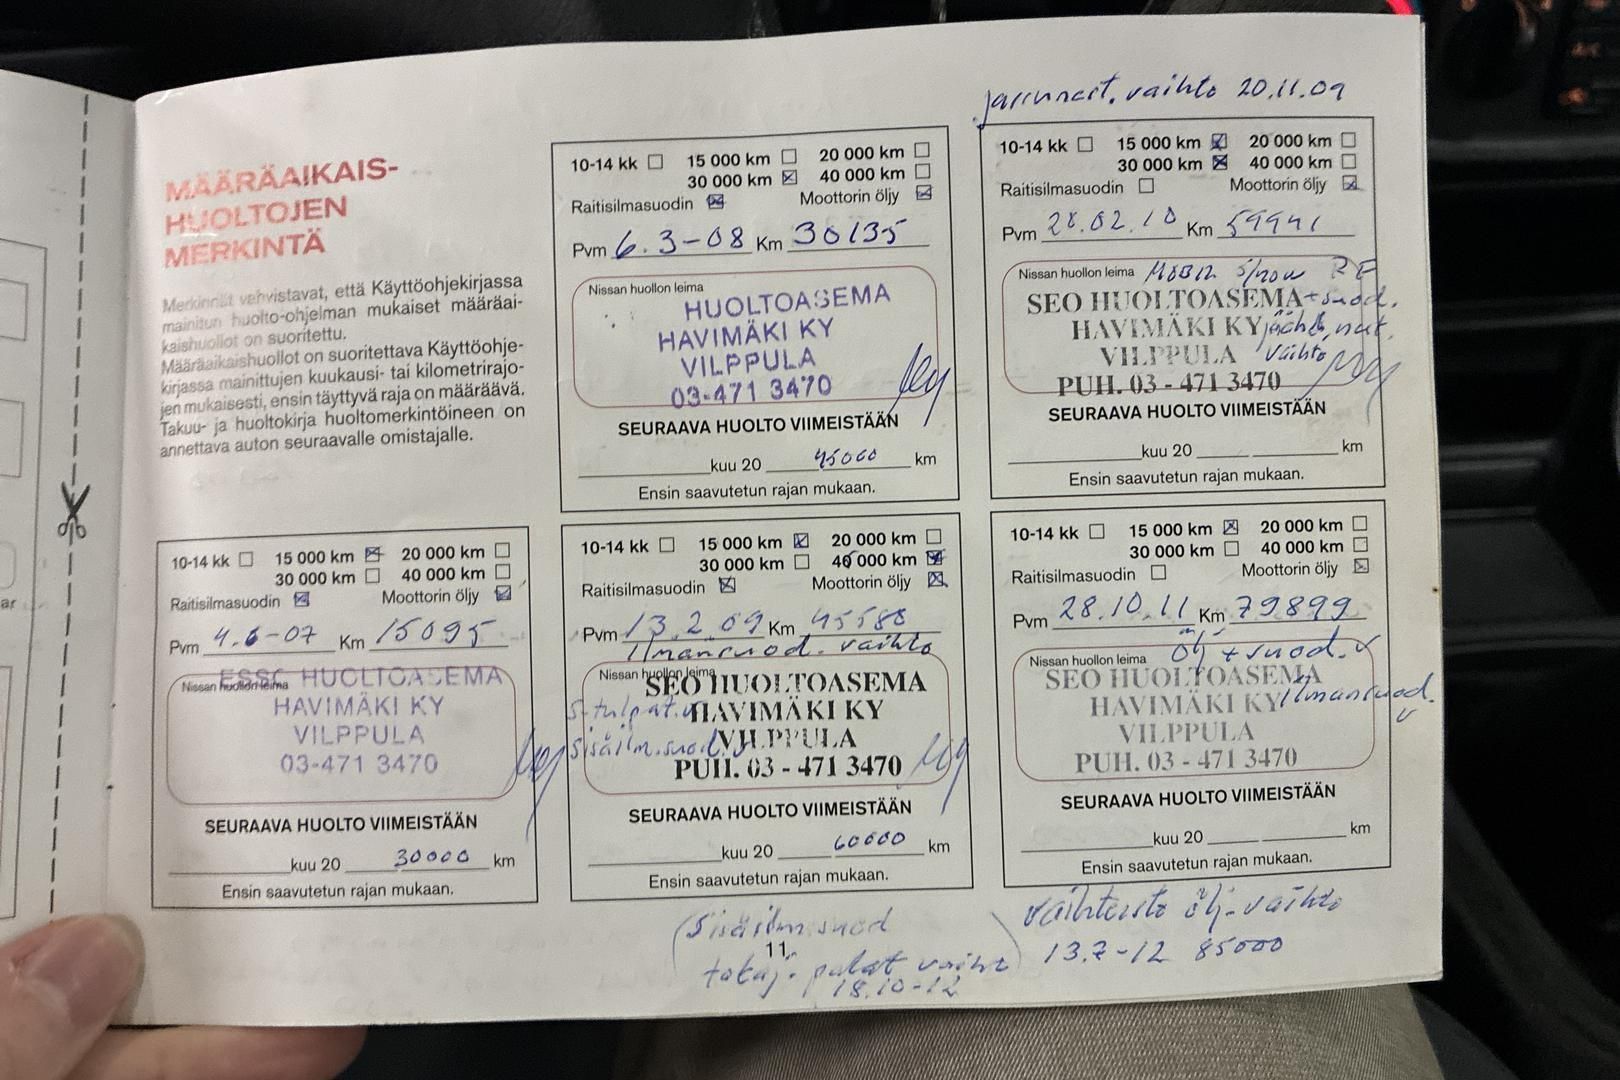 jarrunest. vaihto 20.11.09
MÄÄRÄAIKAIS-
HUOLTOJEN
MERKINTÄ
Merkinnät vahvistavat, että Käyttöohjekirjassa
mainitun huolto-ohjelman mukaiset määräai-
kaishuollot on suoritettu.
Määräaikaishuollot on suoritettava Käyttöohje-
kirjassa mainittujen kuukausi- tai kilometrirajo-
jen mukaisesti, ensin täyttyvä raja on määräävä.
Takuu- ja huoltokirja huoltomerkintöineen on
annettava auton seuraavalle omistajalle.
10-14 kk 15 000 km 20 000 km
30 000 km 40 000 km
Raitisilmasuodin Moottorin öljy
Pvm 6.3-08 Km 30135
Nissan huollon leima
HUOLTOASEMA
HAVIMÄKI KY
VILPPULA
03-471 3470
SEURAAVA HUOLTO VIIMEISTÄÄN
kuu 20 45000 km
Ensin saavutetun rajan mukaan.
10-14 kk 15 000 km 20 000 km
30 000 km 40 000 km
Raitisilmasuodin Moottorin öljy
Pvm 28.02.10 Km 59941
Nissan huollon leima
SEO HUOLTOASEMA +suod.
HAVIMÄKI KY jäähd. nest.
VILPPULA vaihto
PUH. 03 - 471 3470
SEURAAVA HUOLTO VIIMEISTÄÄN
kuu 20 km
Ensin saavutetun rajan mukaan.
10-14 kk 15 000 km 20 000 km
30 000 km 40 000 km
Raitisilmasuodin Moottorin öljy
Pvm 4.6-07 Km 15095
Nissan huollon leima
ESSO HUOLTOASEMA
HAVIMÄKI KY
VILPPULA
03-471 3470
SEURAAVA HUOLTO VIIMEISTÄÄN
kuu 20 30000 km
Ensin saavutetun rajan mukaan.
10-14 kk 15 000 km 20 000 km
30 000 km 45 000 km
Raitisilmasuodin Moottorin öljy
Pvm 13.2.09 Km 45580
Ilmansuod. vaihto
Nissan huollon leima
SEO HUOLTOASEMA
S-tulpat.v HAVIMÄKI KY
sisäilm.suod.v VILPPULA
PUH. 03 - 471 3470
SEURAAVA HUOLTO VIIMEISTÄÄN
kuu 20 60000 km
Ensin saavutetun rajan mukaan.
10-14 kk 15 000 km 20 000 km
30 000 km 40 000 km
Raitisilmasuodin Moottorin öljy
Pvm 28.10.11 Km 79899
Nissan huollon leima öljy + suod. v
SEO HUOLTOASEMA
HAVIMÄKI KY Ilmansuod.
v
VILPPULA
PUH. 03 - 471 3470
SEURAAVA HUOLTO VIIMEISTÄÄN
kuu 20 km
Ensin saavutetun rajan mukaan.
(Sisäilm.suod
11.
takaj. palat vaiht)
18.10-12
vaihteisto öljy-vaihto
13.7-12 85000